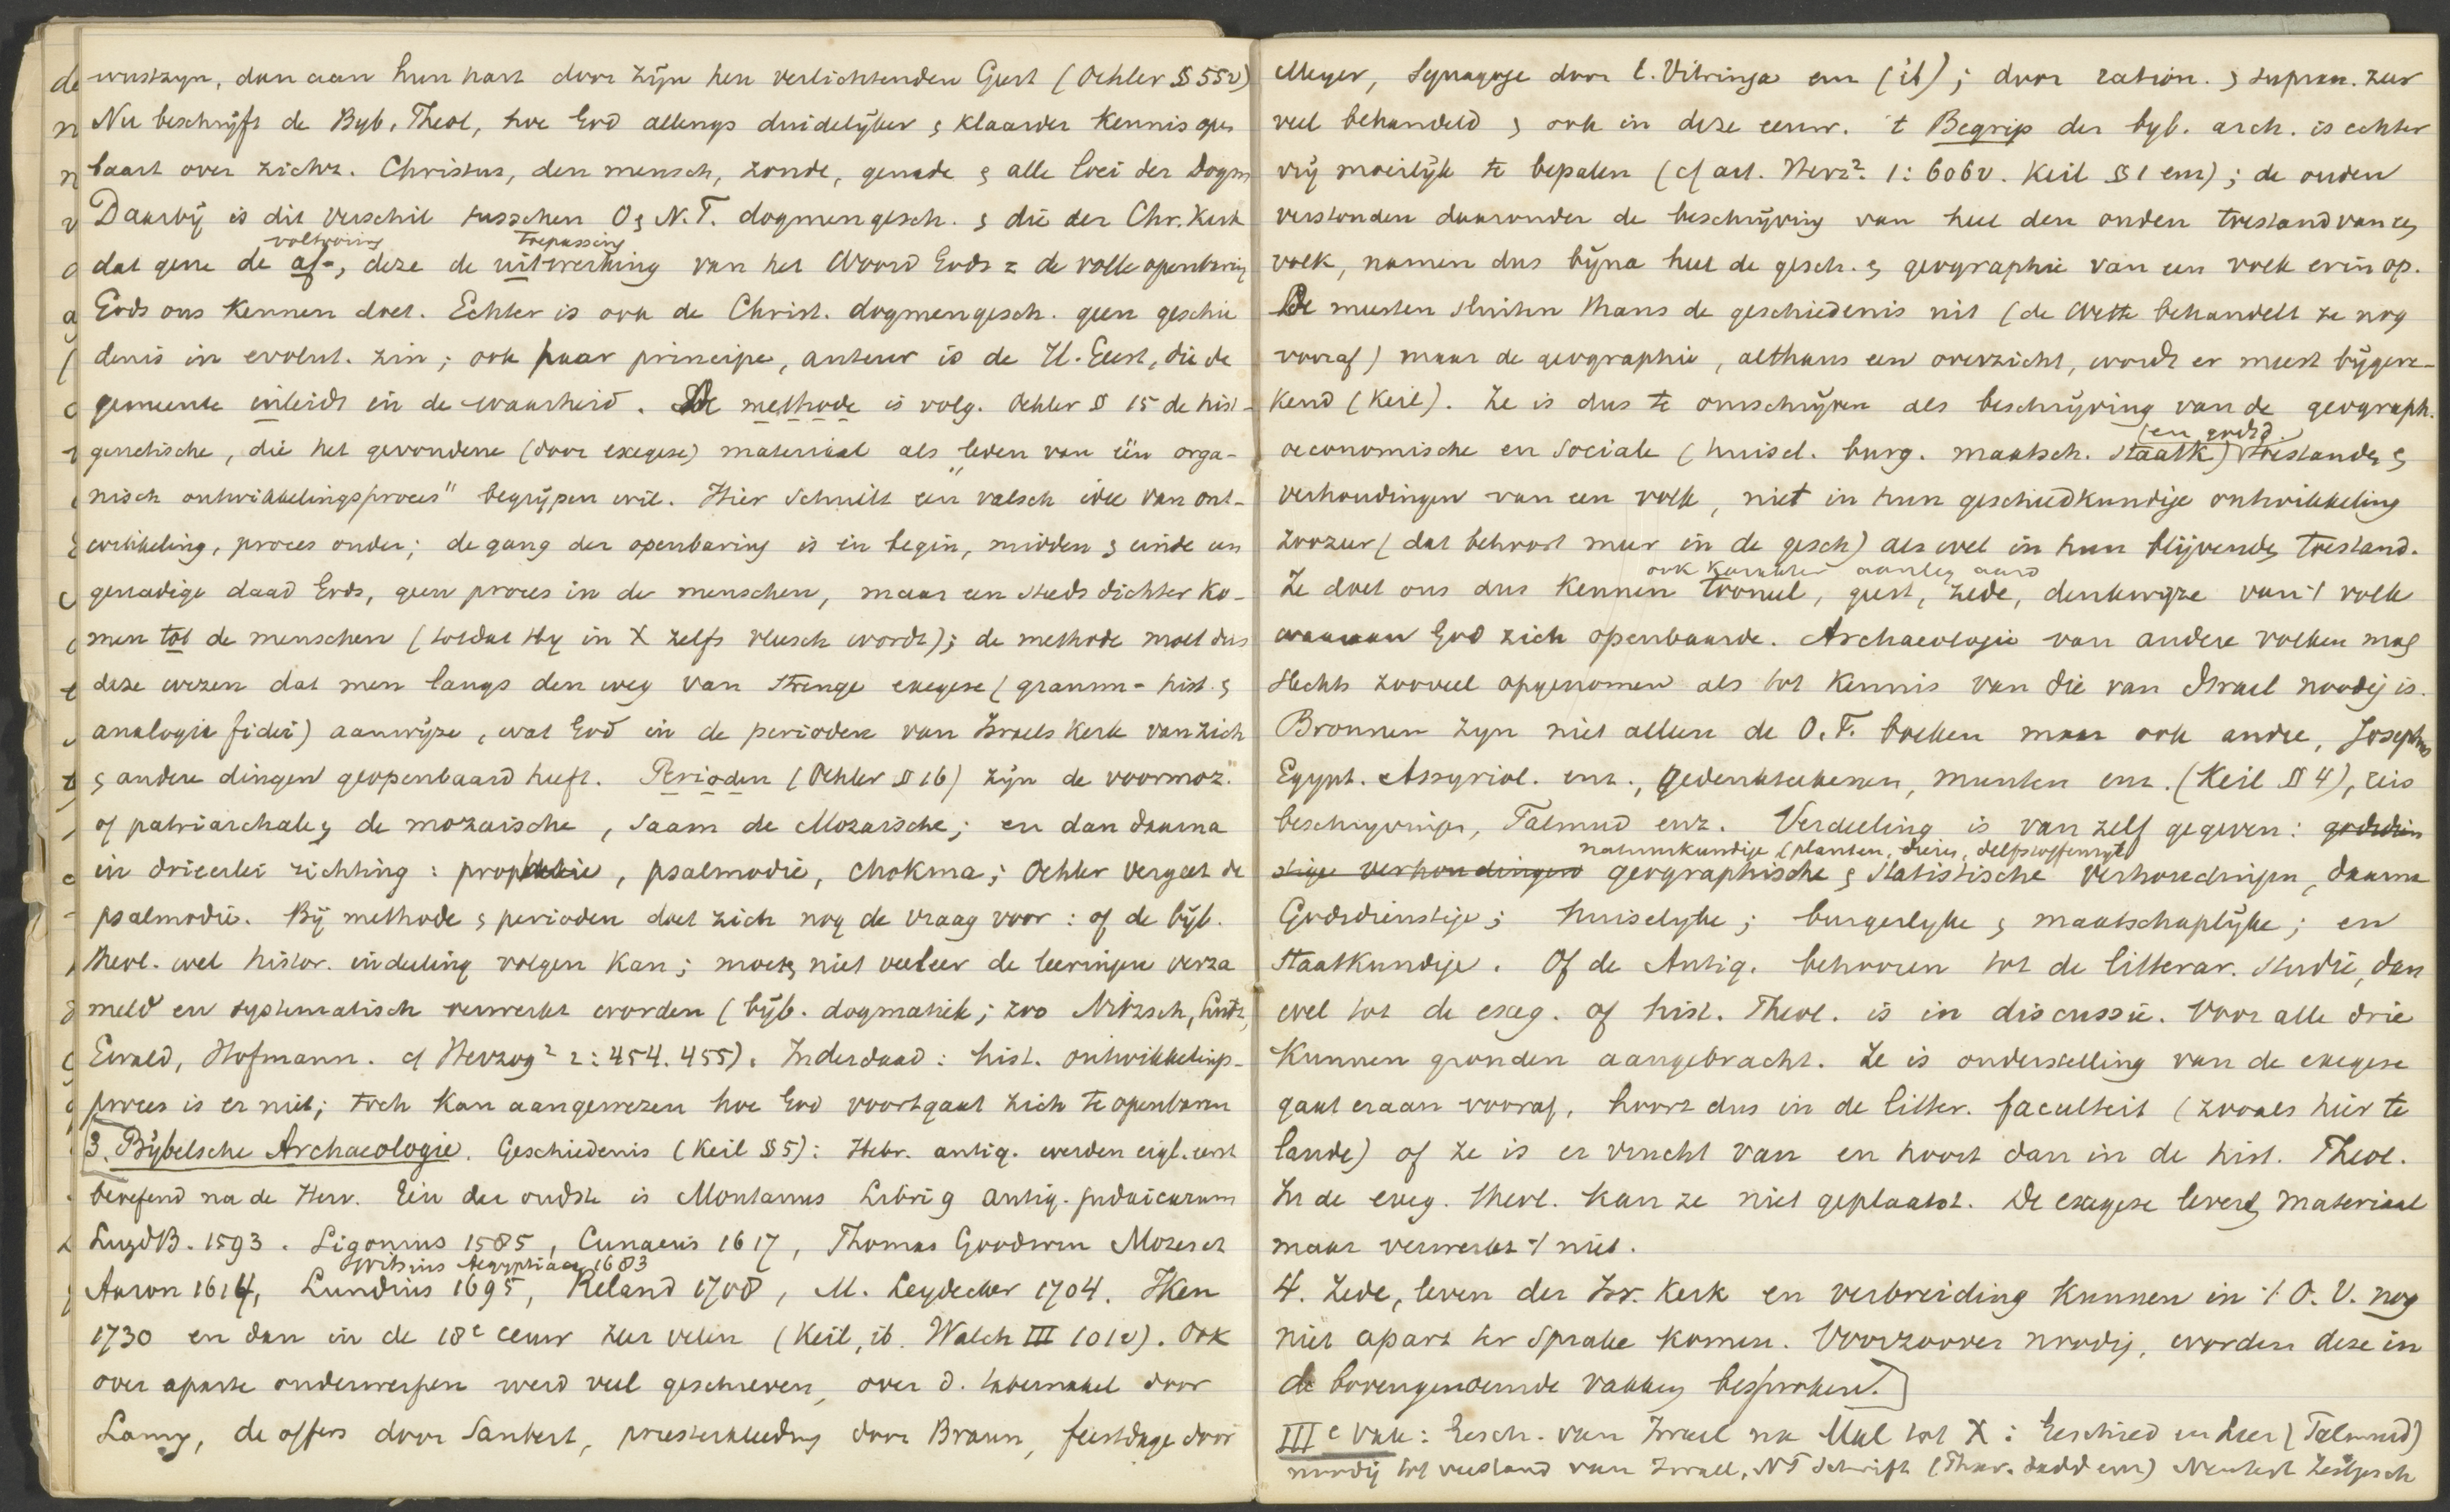 wustzyn, dan aan hun hart door zijn hen verlichtenden Geest (Oehler § 55v)
Nu beschrijft de Byb. Theol, hoe God allengs duidelijker & klaarder kennis open
baart over zichz. Christus, den mensch, zonde, genade & alle loci der Dogm
Daarbij is dit verschil tusschen O & N.T. dogmengesch. & die der Chr. Kerk
voltooiing toepassing
dat gene de af-, deze de uitwerking van het Woord Gods = de volle openbaring
Gods ons kennen doet. Echter is ook de Christ. dogmengesch. geen geschie
denis in evolut. zin; ook haar principe, auteur is de H. Geest, die de
gemeente inleidt in de waarheid. De methode is volg. Oehler § 15 de hist-
genetische, die het gevondene (door exegese) materiaal als "leden van één orga-
nisch ontwikkelingsproces" begrijpen wil. Hier schuilt een valsch idee van ont-
wikkeling, proces onder; de gang der openbaring is in begin, midden & einde een
genadige daad Gods, geen proces in de menschen, maar een steeds dichter ko-
men tot de menschen (totdat Hy in X zelfs vleesch wordt); de methode moet dus
deze wezen dat men langs den weg van strenge exegese (gramm- hist. &
analogia fidei) aanwijze, wat God in de perioden van Israels Kerk van zich
& andere dingen geopenbaard heeft. Perioden (Oehler § 16) zijn de voormoz.
of patriarchale, de mozaische, saam de Mozaische; en dan daarna
in drieerlei richting: prophetie, psalmodie, chokma; Oehler vergeet de
psalmodie. Bij methode & perioden doet zich nog de vraag voor: of de bijb.
Theol. wel histor. indeeling volgen kan; moet niet veeleer de leeringen verza
meld en systematisch verwerkt worden (bijb. dogmatiek; zoo Nitzsch, Lutz,
Ewald, Hofmann. cf Herzog² 2: 454. 455). Inderdaad: hist. ontwikkelings-
proces is er niet; toch kan aangewezen hoe God voortgaat zich te openbaren
3. Bijbelsche Archaeologie. Geschiedenis (Keil § 5): Hebr. antiq. werden eigl. eerst
beoefend na de Herv. Eén der oudste is Montanus Libri 9 antiq. judaicarum
LugdB. 1593. Sigonius 1585, Cunaeus 1617, Thomas Goodwin Mozes et
Witsius Aegyptiaca 1683
Aaron 1616, Lundius 1695, Reland 1708, M. Leydecker 1704. Iken
1730 en dan in de 18e eeuw zeer velen (Keil, ib. Walch III 101v). Ook
over aparte onderwerpen werd veel geschreven, over d. tabernakel door
Lamy, de offers door Saubert, priesterkleeding door Braun, feestdage door
Meyer, Synagoge door C. Vitringa enz (ib); door ration. & supran. zeer
veel behandeld & ook in deze eeuw. 't Begrip der byb. arch. is echter
vrij moeilijk te bepalen (cf art. Herz² 1: 606v. Keil § 1 enz); de ouden
verstonden daaronder de beschrijving van heel den ouden toestand van een
volk, namen dus bijna heel de gesch. & geographie van een volk erin op.
De meesten sluiten thans de geschiedenis uit (de Wette behandelt ze nog
vooraf) maar de geographie, althans een overzicht, wordt er meest bijgere-
kend (Keil). Ze is dus te omschrijven als beschrijving van de geograph.
(en godsd.)
oeconomische en sociale (huisel. burg. maatsch. staatk) toestanden &
verhoudingen van een volk, niet in hun geschiedkundige ontwikkeling
zoozeer (dat behoort meer in de gesch) als wel in hun blijvende toestand.
ook karakter aanleg aard
Ze doet ons dus kennen tooneel, geest, zede, denkwijze van 't volk
waaraan God zich openbaarde. Archaeologie van andere volken mag
slechts zooveel opgenomen als tot kennis van die van Israel noodig is.
Bronnen zyn niet alleen de O.T. boeken maar ook andre, Josephus
Egypt. Assyriol. enz., gedenkteekenen, munten enz. (Keil § 4), reis
beschryvingen, Talmud enz. Verdeeling is van zelf gegeven: godsdien
natuurkundige (planten, dieren, delfstoffenrijk)
stige verhoudingen geographische & statistische verhoudingen, daarna
Godsdienstige; huiselyke; burgerlyke & maatschaplijke; en
staatkundige. Of de Antiq. behooren tot de litterar. studie, dan
wel tot de exeg. of hist. Theol. is in discussie. Voor alle drie
kunnen gronden aangebracht. Ze is onderstelling van de exegese
gaat eraan vooraf, hoort dus in de litter. faculteit (zooals hier te
lande) of ze is er vrucht van en hoort dan in de hist. Theol.
In de exeg. theol. kan ze niet geplaatst. De exegese levert materiaal
maar verwerkt 't niet.
4. Zede, leven der Isr. Kerk en verbreiding kunnen in 't O.V. nog
niet apart ter sprake komen. Voorzoover noodig, worden deze in
de bovengenoemde vakken besproken.]
IIIe vak: Gesch. van Israel na Mal tot X: Geschied en Leer (Talmud)
noodig tot verstand van Israel, NT Schrift Zeitgesch